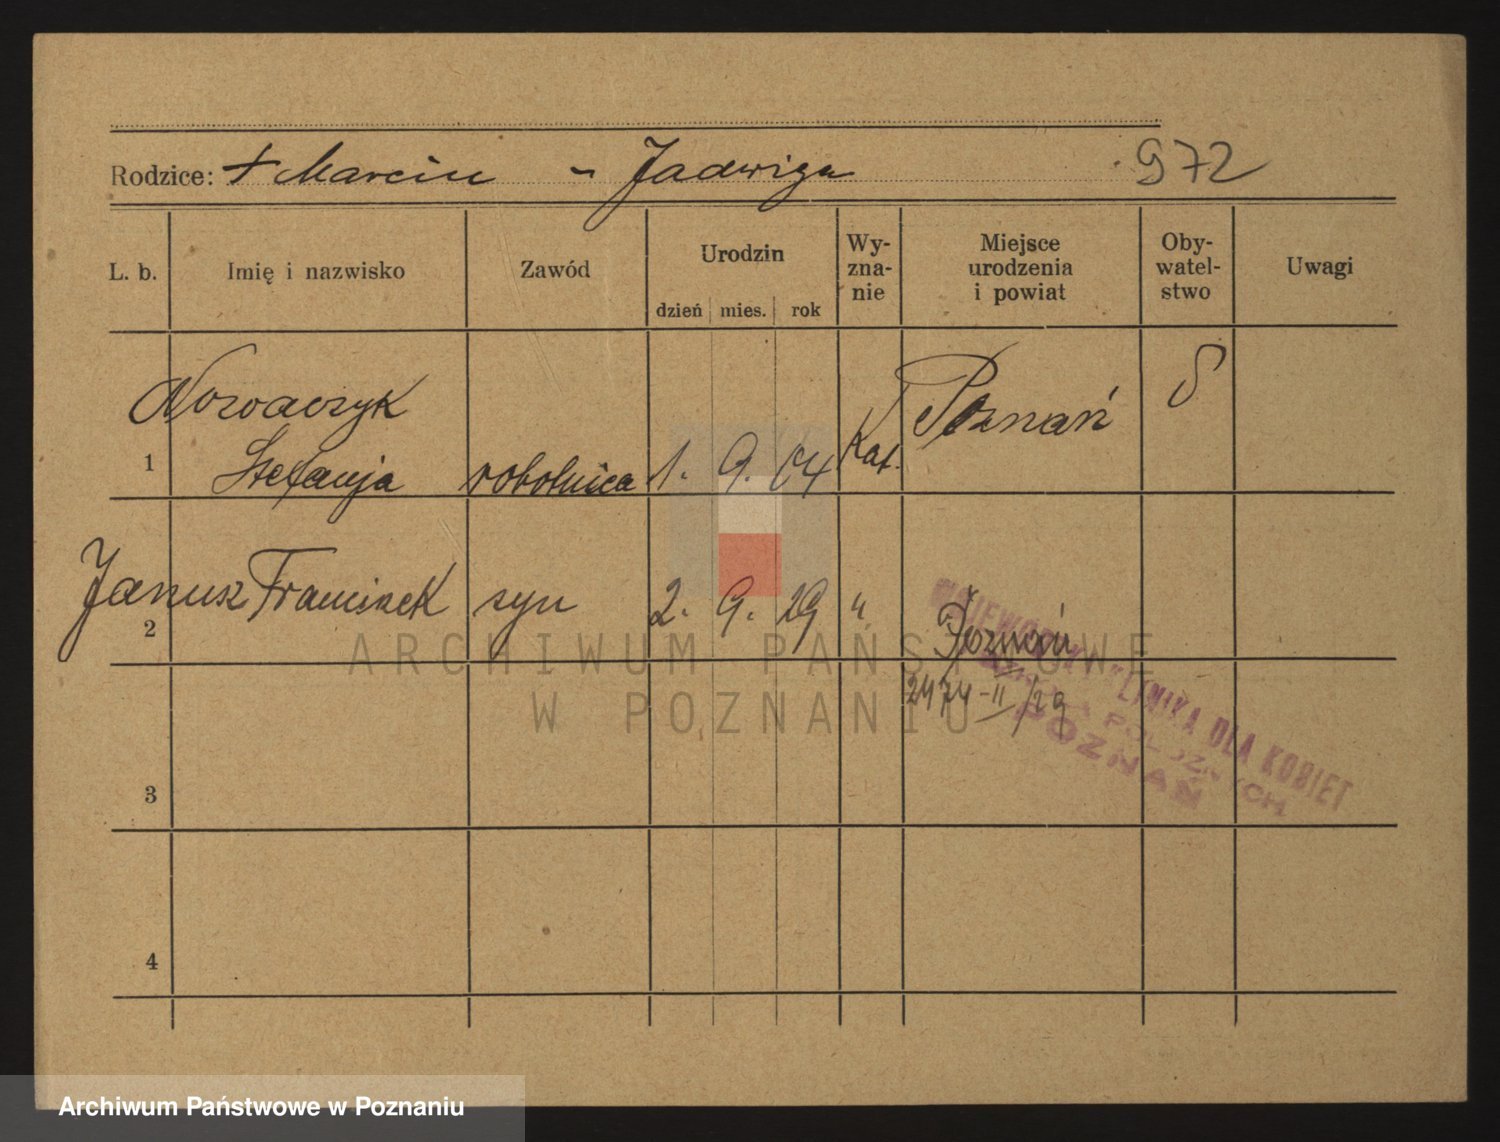 Rodzice: + Marcin - Jadwiga 972
L. b. Imię i nazwisko Zawód Urodzin dzień mies. rok Wy-zna-nie Miejsce urodzenia i powiat Oby-watel-stwo Uwagi
Nowaczyk
1 Stefanja robotnica 1. 9. 04 Kat. Poznań
Janusz Franciszek syn 2. 9. 29 " Poznań
2
2474-II/29
WOJEWÓDZKA KLINIKA DLA KOBIET
POZNAŃ
3
4
ARCHIWUM PAŃSTWOWE
W POZNANIU
Archiwum Państwowe w Poznaniu